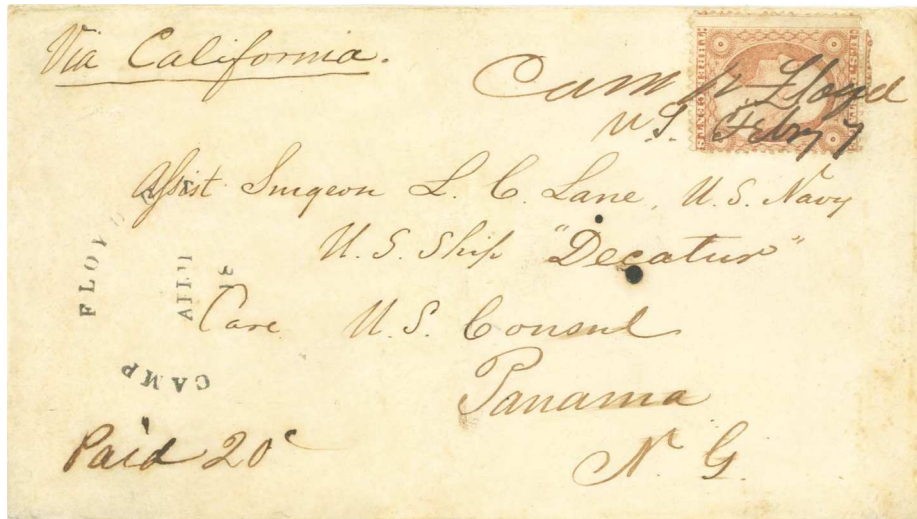 Via California.
Camp Floyd
U.S. Febry 7
Assist Surgeon L. C. Lane, U.S. Navy
U.S. Ship "Decatur"
Care U.S. Consul
Panama
N. G.
Paid 20c
CAMP FLOYD